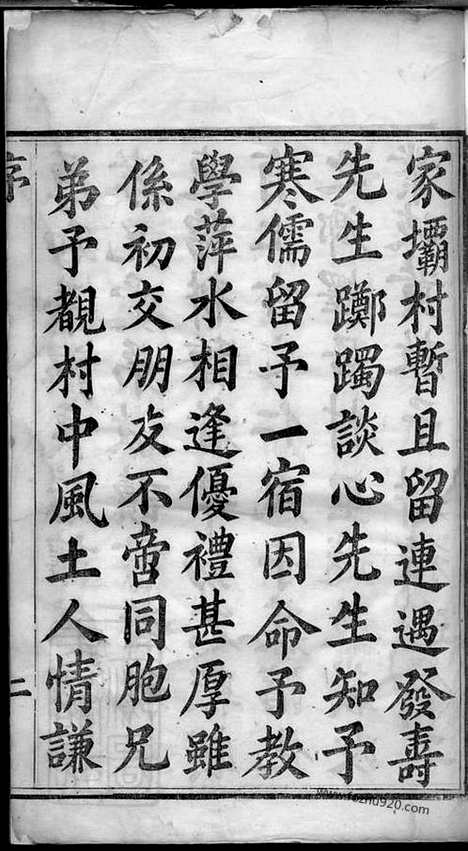 家壩村暫且留連遇發壽
先生躑躅談心先生知予
寒儒留予一宿因命予教
學萍水相逢優禮甚厚雖
係初交朋友不啻同胞兄
弟予覩村中風土人情謙
序
二
www.fozhu920.com